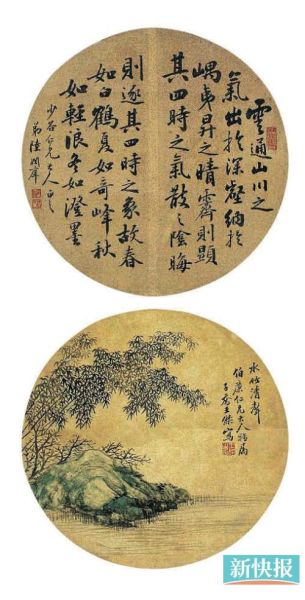 雲通山川之
氣出於深壑納於
嵎夷昇之晴霽則顯
其四時之氣散之陰晦
則逐其四時之象故春
如白鶴夏如奇峰秋
如輕浪冬如澄墨
少谷仁兄大人正之
弟陸潤庠
水竹清聲
伯康仁兄大人指屬
子產王傑寫
新快报